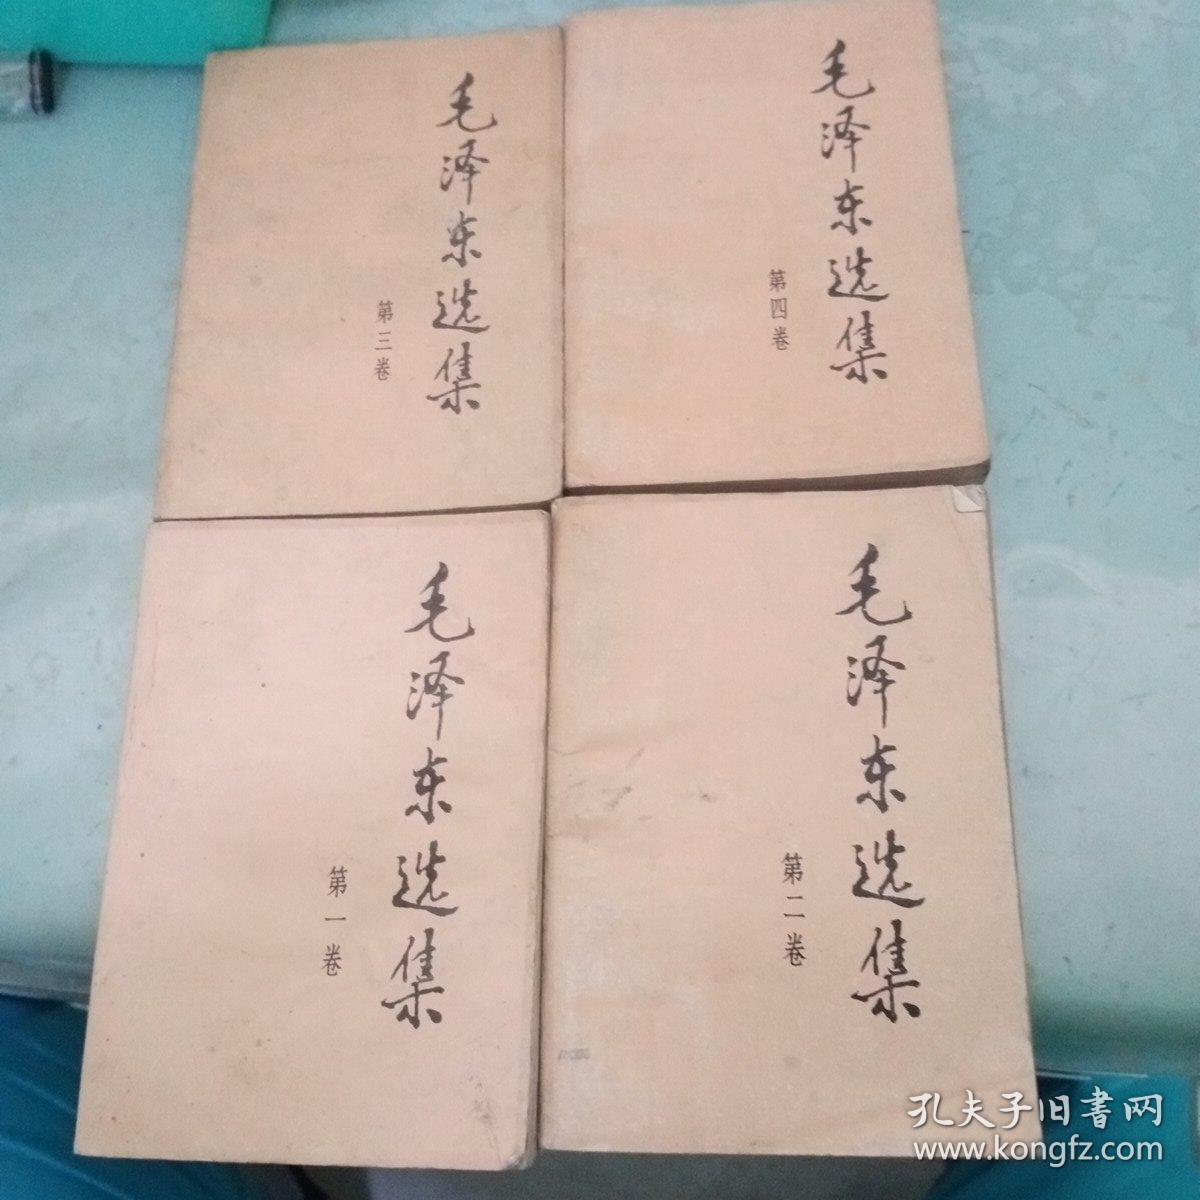 毛泽东选集
第三卷
毛泽东选集
第四卷
毛泽东选集
第一卷
毛泽东选集
第二卷
孔夫子旧書网
www.kongfz.com